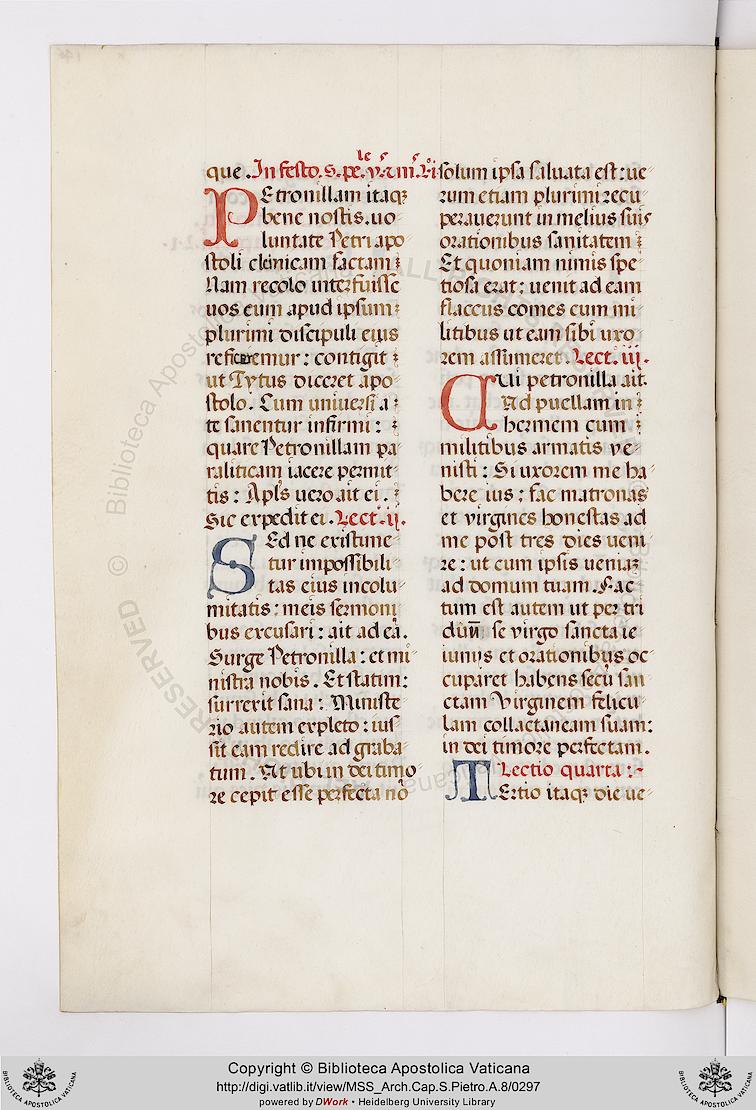 que. In festo. S. pe. v. et m. le. i.
PEtronillam itaq3
bene nostis. uo
luntate Petri apo
stoli clinicam factam:
Nam recolo interfuisse
uos cum apud ipsum
plurimi discipuli eius
reficeremur: contigit
ut Tytus diceret apo
stolo. Cum universi a
te sanentur infirmi:
quare Petronillam pa
raliticam iacere permit
tis: Apls uero ait ei.
Sic expedit ei. Lect. ij.
SEd ne existime
tur impossibili
tas eius incolu
mitatis: meis sermoni
bus excusari: ait ad eā.
Surge Petronilla: et mi
nistra nobis. Et statim:
surrexit sana: Ministe
rio autem expleto: ius
sit eam redire ad graba
tum. At ubi in dei timo
re cepit esse perfecta nō
solum ipsa saluata est: ue
rum etiam plurimi recu
perauerunt in melius suis
orationibus sanitatem:
Et quoniam nimis spe
tiosa erat: uenit ad eam
flaccus comes cum mi
litibus ut eam sibi uxo
rem assumeret. Lect. iij.
CUi petronilla ait.
Ad puellam in
hermem cum
militibus armatis ve
nisti: Si uxorem me ha
bere uis: fac matronas
et virgines honestas ad
me post tres dies ueni
re: ut cum ipsis ueniaz
ad domum tuam. Fac
tum est autem ut per tri
duū se virgo sancta ie
iuniis et orationibus oc
cuparet habens secū san
ctam Virginem felicu
lam collactaneam suam:
in dei timore perfectam.
Lectio quarta:
TErtio itaq3 die ue
© Biblioteca Apostolica Vaticana ALL RIGHTS RESERVED
Copyright © Biblioteca Apostolica Vaticana
http://digi.vatlib.it/view/MSS_Arch.Cap.S.Pietro.A.8/0297
powered by DWork • Heidelberg University Library
BIBLIOTECA APOSTOLICA VATICANA
BIBLIOTECA APOSTOLICA VATICANA